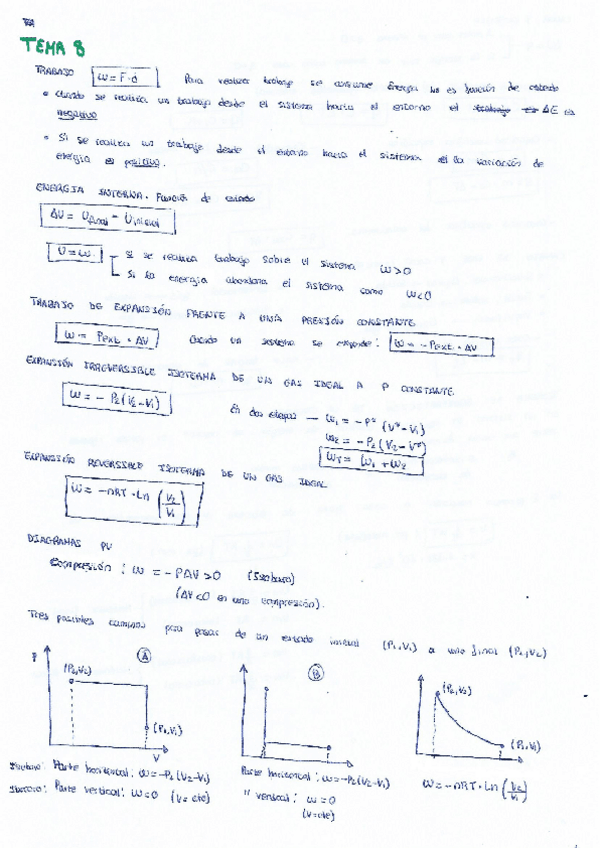 TEMA 8
TRABAJO w = F·d Para realizar trabajo se consume Energía no es función de estado
• Cuando se realiza un trabajo desde el sistema hasta el entorno el trabajo es ΔE es
negativo
• Si se realiza un trabajo desde el entorno hacia el sistema el la variación de
energía es positivo.
ENERGIA INTERNA. Función de estado
ΔU = Ufinal - Uinicial
U = w. si se realiza trabajo sobre el sistema w>0
Si la energía abandona el sistema como w<0
TRABAJO DE EXPANSIÓN FRENTE A UNA PRESIÓN CONSTANTE
w = Pext · ΔV Cuando un sistema se expande: w = - Pext · ΔV
EXPANSIÓN IRREVERSIBLE ISOTERMA DE UN GAS IDEAL A P CONSTANTE
w = - P2 (V2 - V1) En dos etapas — w1 = -P* (V* - V1)
w2 = -P2 (V2 - V*)
wT = w1 + w2
EXPANSIÓN REVERSIBLE ISOTERMA DE UN GAS IDEAL
w = -nRT · Ln (V2/V1)
DIAGRAMAS PV
Compresión : w = - PΔV > 0 (Isobara)
(ΔV < 0 en una compresión).
Tres posibles caminos para pasar de un estado inicial (P1,V1) a uno final (P2,V2)
P (P2,V2) A (P1,V1) V
B
(P2,V2) (P1,V1)
Isobaro: Parte horizontal: w = -P2 (V2-V1)
Isocoro: Parte vertical: w=0 (V=cte)
Parte horizontal: w = -P2 (V2-V1)
" vertical: w = 0
(V=cte)
w = -nRT · Ln (V2/V1)